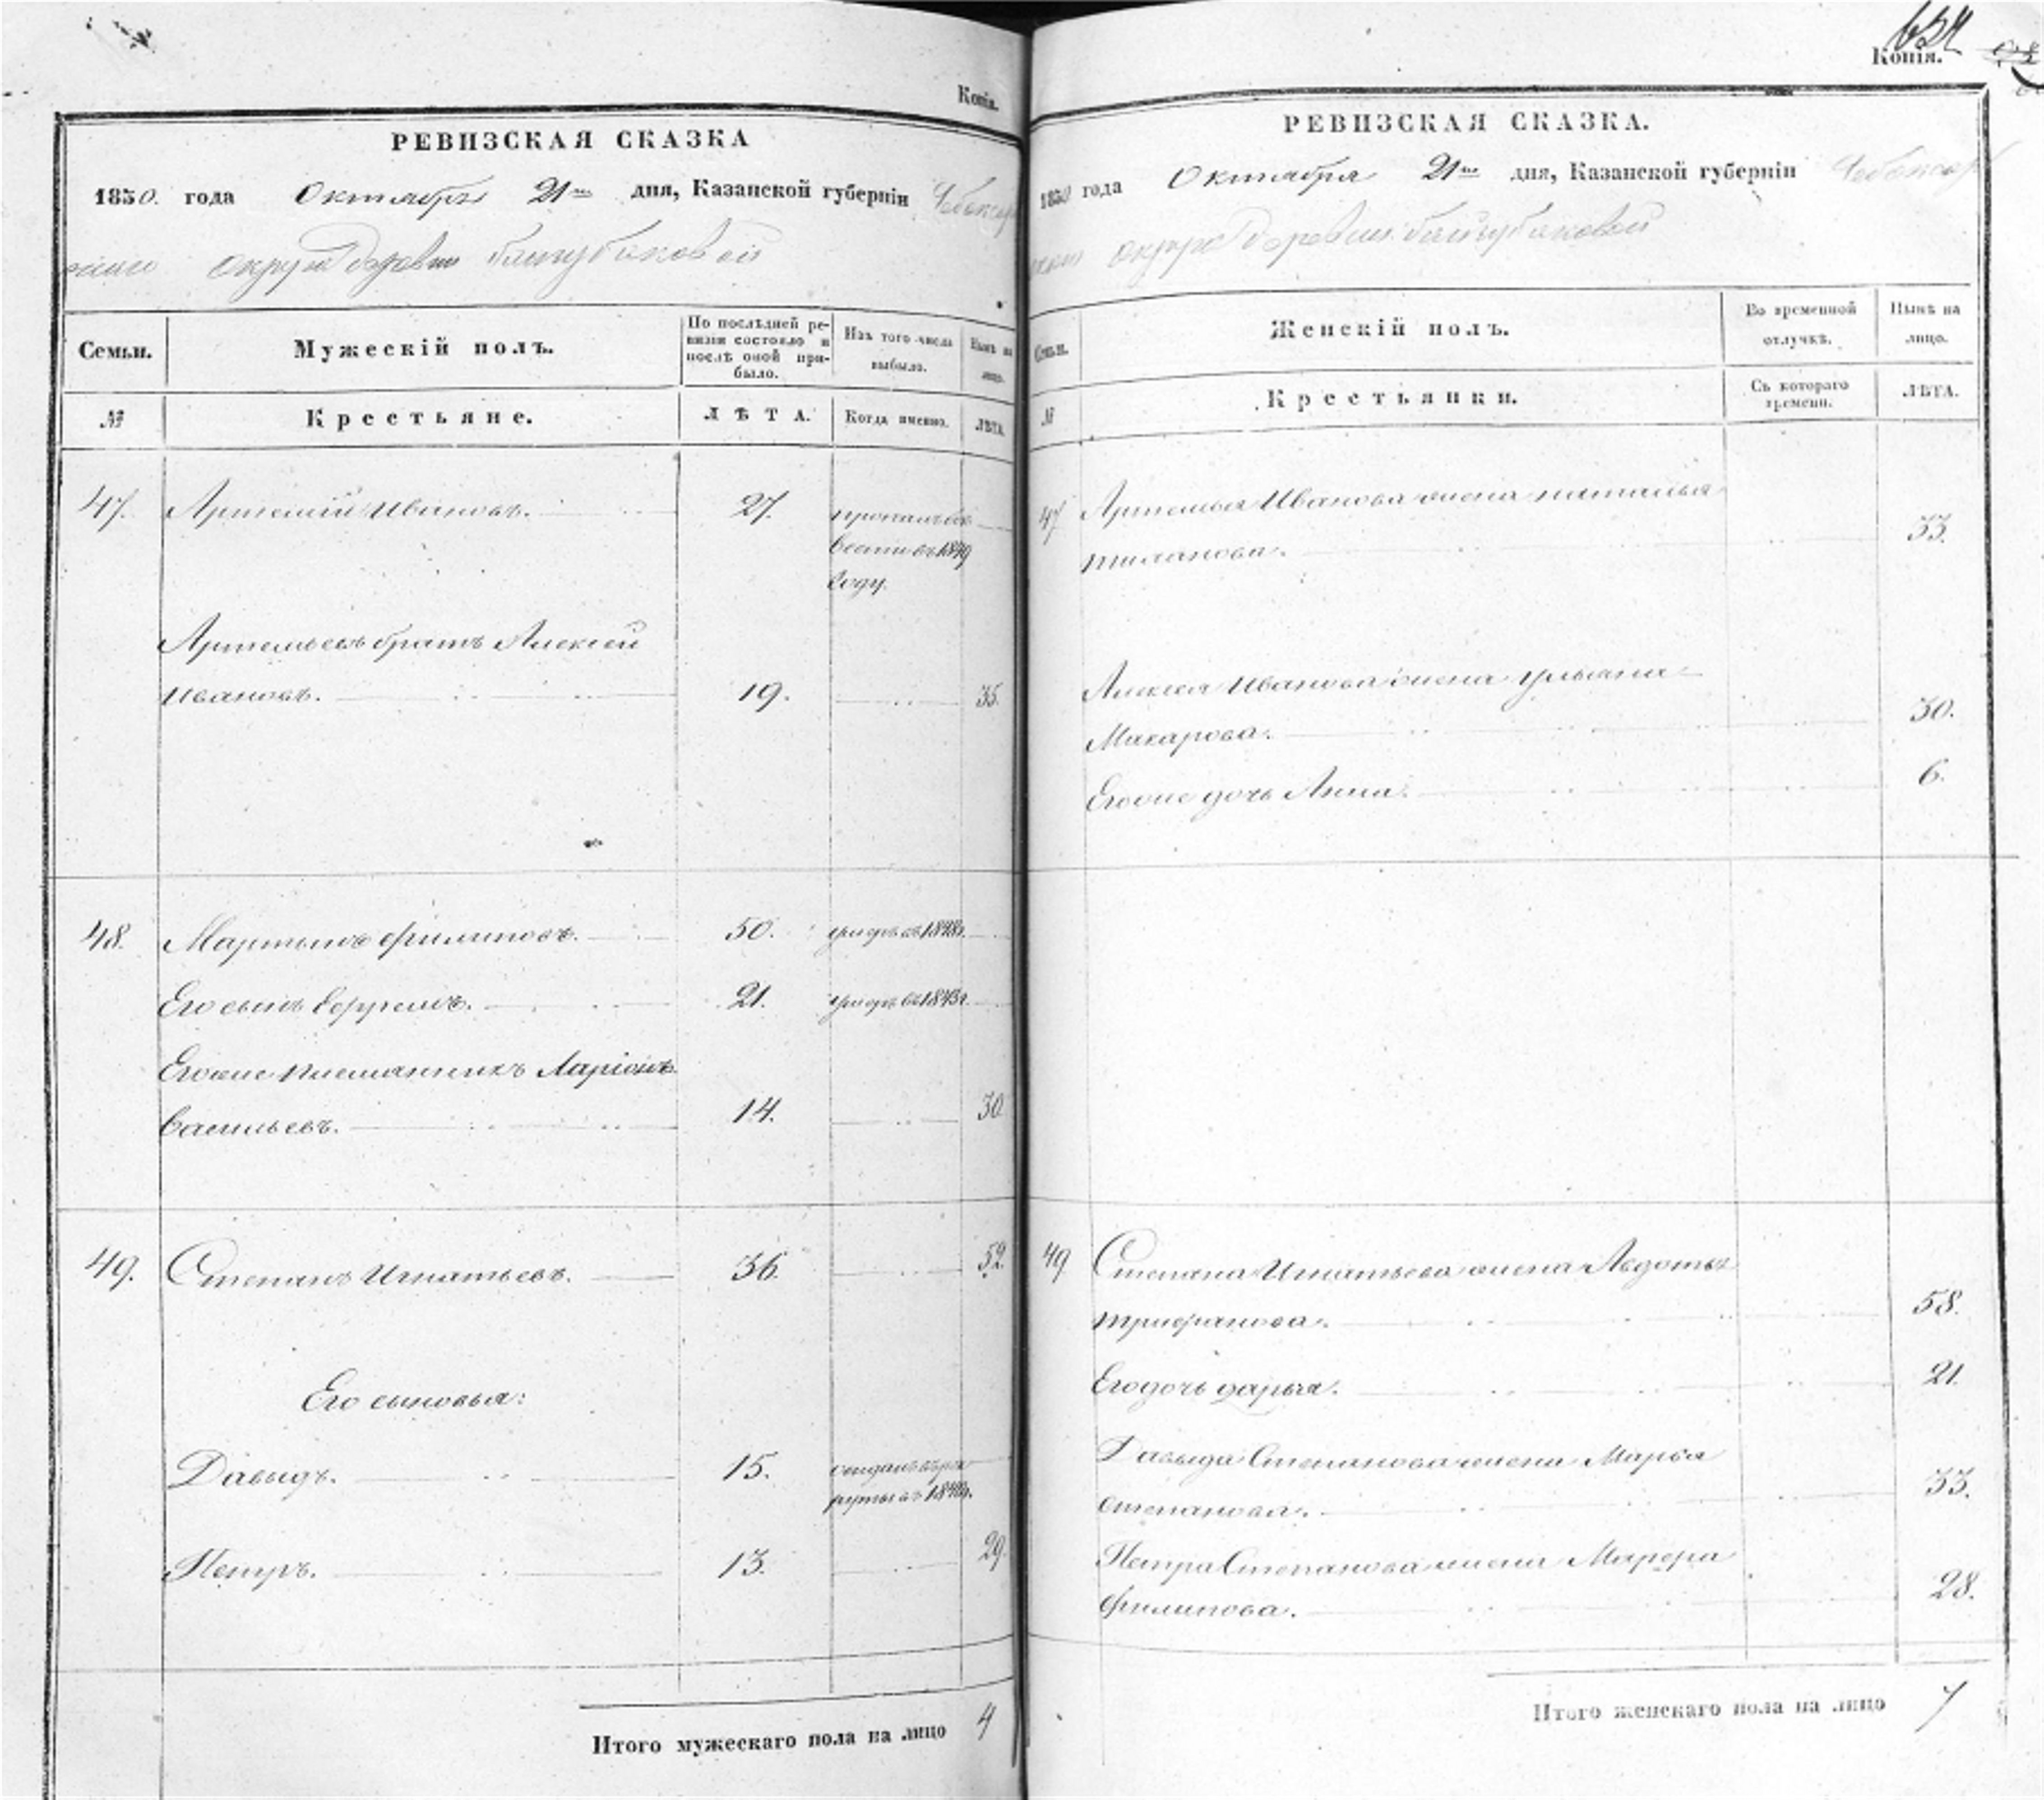 Копія.
РЕВИЗСКАЯ СКАЗКА
1850. года Октября 21го дня, Казанской губерніи Чебоксар
округи деревни
Семьи. Мужескій полъ. По послѣдней ре-визіи состояло и послѣ оной при-было. Изъ того числа выбыло. Нынѣ на лицо.
№ Крестьяне. ЛѢТА. Когда именно. ЛѢТА.
47. Артемій Ивановъ. 27. пропалъ безъ
вести въ 1849
году.
Артемьевъ братъ Алексей
Ивановъ. 19. 35.
48. Мартынъ Филиповъ. 50.
Его сынъ Ефремъ. 21.
Егоже племянникъ Ларіонъ
Васильевъ. 14. 30
49. Степанъ Игнатьевъ. 36. 52.
Его сыновья:
Давыдъ. 15. отданъ въ рек
руты въ
Петръ. 13. 29.
Итого мужескаго пола на лицо 4
654
Копія.
РЕВИЗСКАЯ СКАЗКА.
1850 года Октября 21го дня, Казанской губерніи Чебоксар
округи деревни
Семьи. Женскій полъ. Во временной отлучкѣ. Нынѣ на лицо.
№ Крестьянки. Съ котораго времени. ЛѢТА.
47 Артемья Иванова жена Наталья
33.
Алексея Иванова жена Ульяна
Макарова. 30.
Егоже дочь Анна. 6.
49 Степана Игнатьева жена Авдотья
Трифанова. 58.
Его дочь Дарья. 21.
Давыда Степанова жена Марья
Степанова. 33.
Петра Степанова жена Марфа
Филипова. 28.
Итого женскаго пола на лицо 7